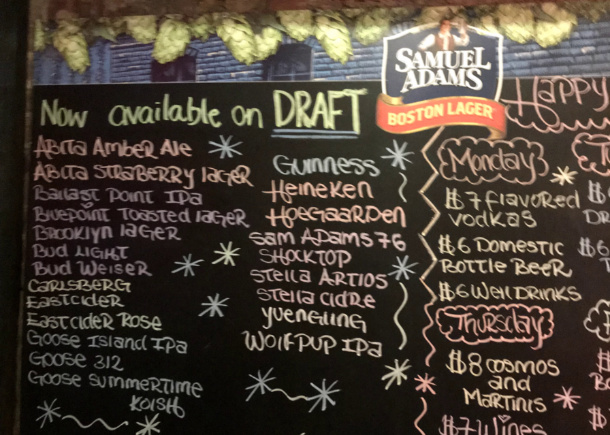 SAMUEL
ADAMS
BOSTON LAGER
Now available on DRAFT
Abita Amber Ale
Abita Straberry lager
Ballast Point Ipa
Bluepoint Toasted lager
Brooklyn lager
Bud Light
Bud Weiser
Carlsberg
Eastcider
Eastcider Rose
Goose Island Ipa
Goose 312
Goose Summertime
Kolsh
Guinness
Heineken
Hoegaarden
Sam Adams 76
Shocktop
Stella Artios
Stella cidre
yuengling
Wolfpup Ipa
Happy
Monday
$7 flavored
vodkas
$6 Domestic
Bottle Beer
$6 Well Drinks
Thursday
$8 cosmos
and
Martinis
$7 Wines